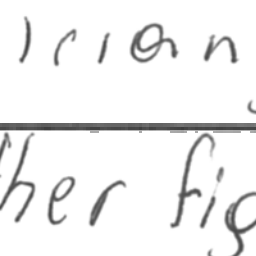 rian
her fig